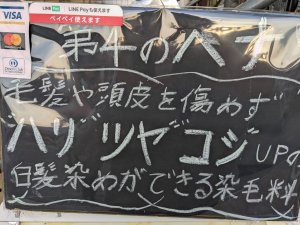 VISA
LINE Pay LINE Payも使えます
ペイペイ使えます
第4のヘナ
毛髪や頭皮を傷めず
ハリ ツヤ コシ UPの
白髪染めができる染毛料